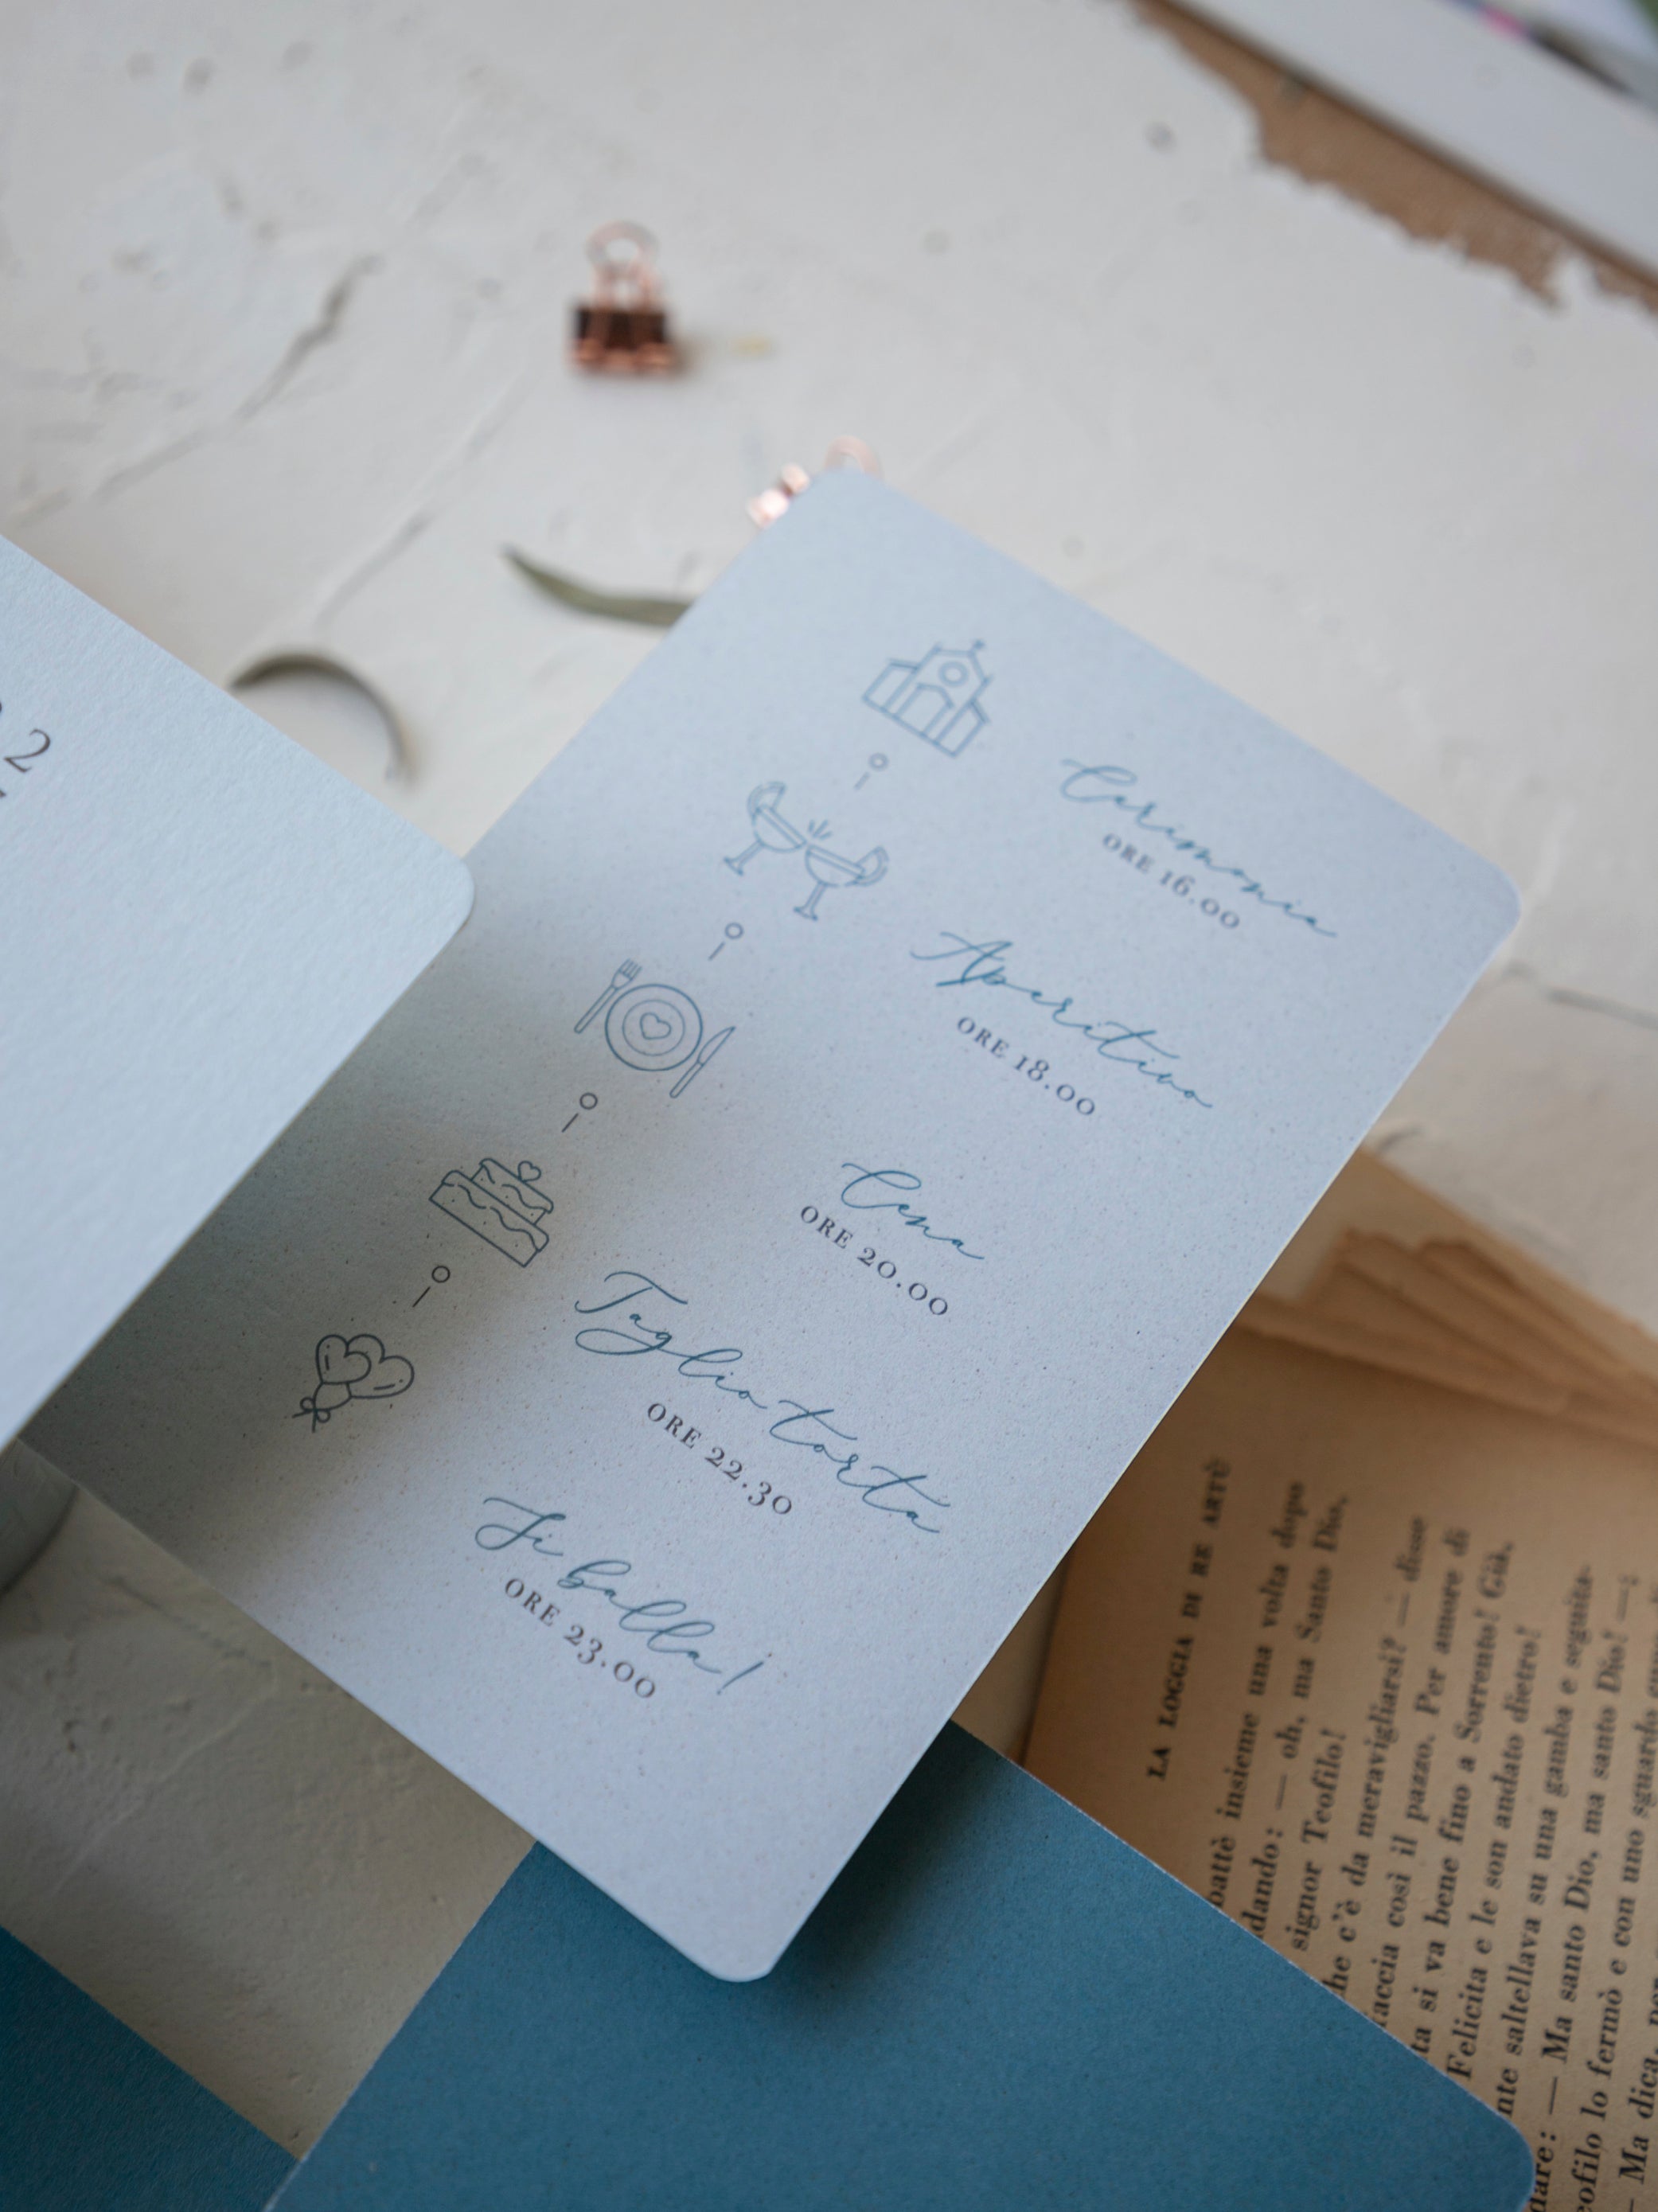 2
Cerimonia
ORE 16.00
Aperitivo
ORE 18.00
Cena
ORE 20.00
Taglio torta
ORE 22.30
Si balla!
ORE 23.00
LA LOGGIA DI RE ARTÙ
insieme una volta dopo
— oh, ma Santo Dio,
signor Teofilo!
c'è da meravigliarsi? — disse
così il pazzo. Per amore di
si va bene fino a Sorrento! Già,
Felicita e le son andato dietro!
saltellava su una gamba e seguita-
— Ma santo Dio, ma santo Dio! —
lo fermò e con uno sguardo
— Ma dica,